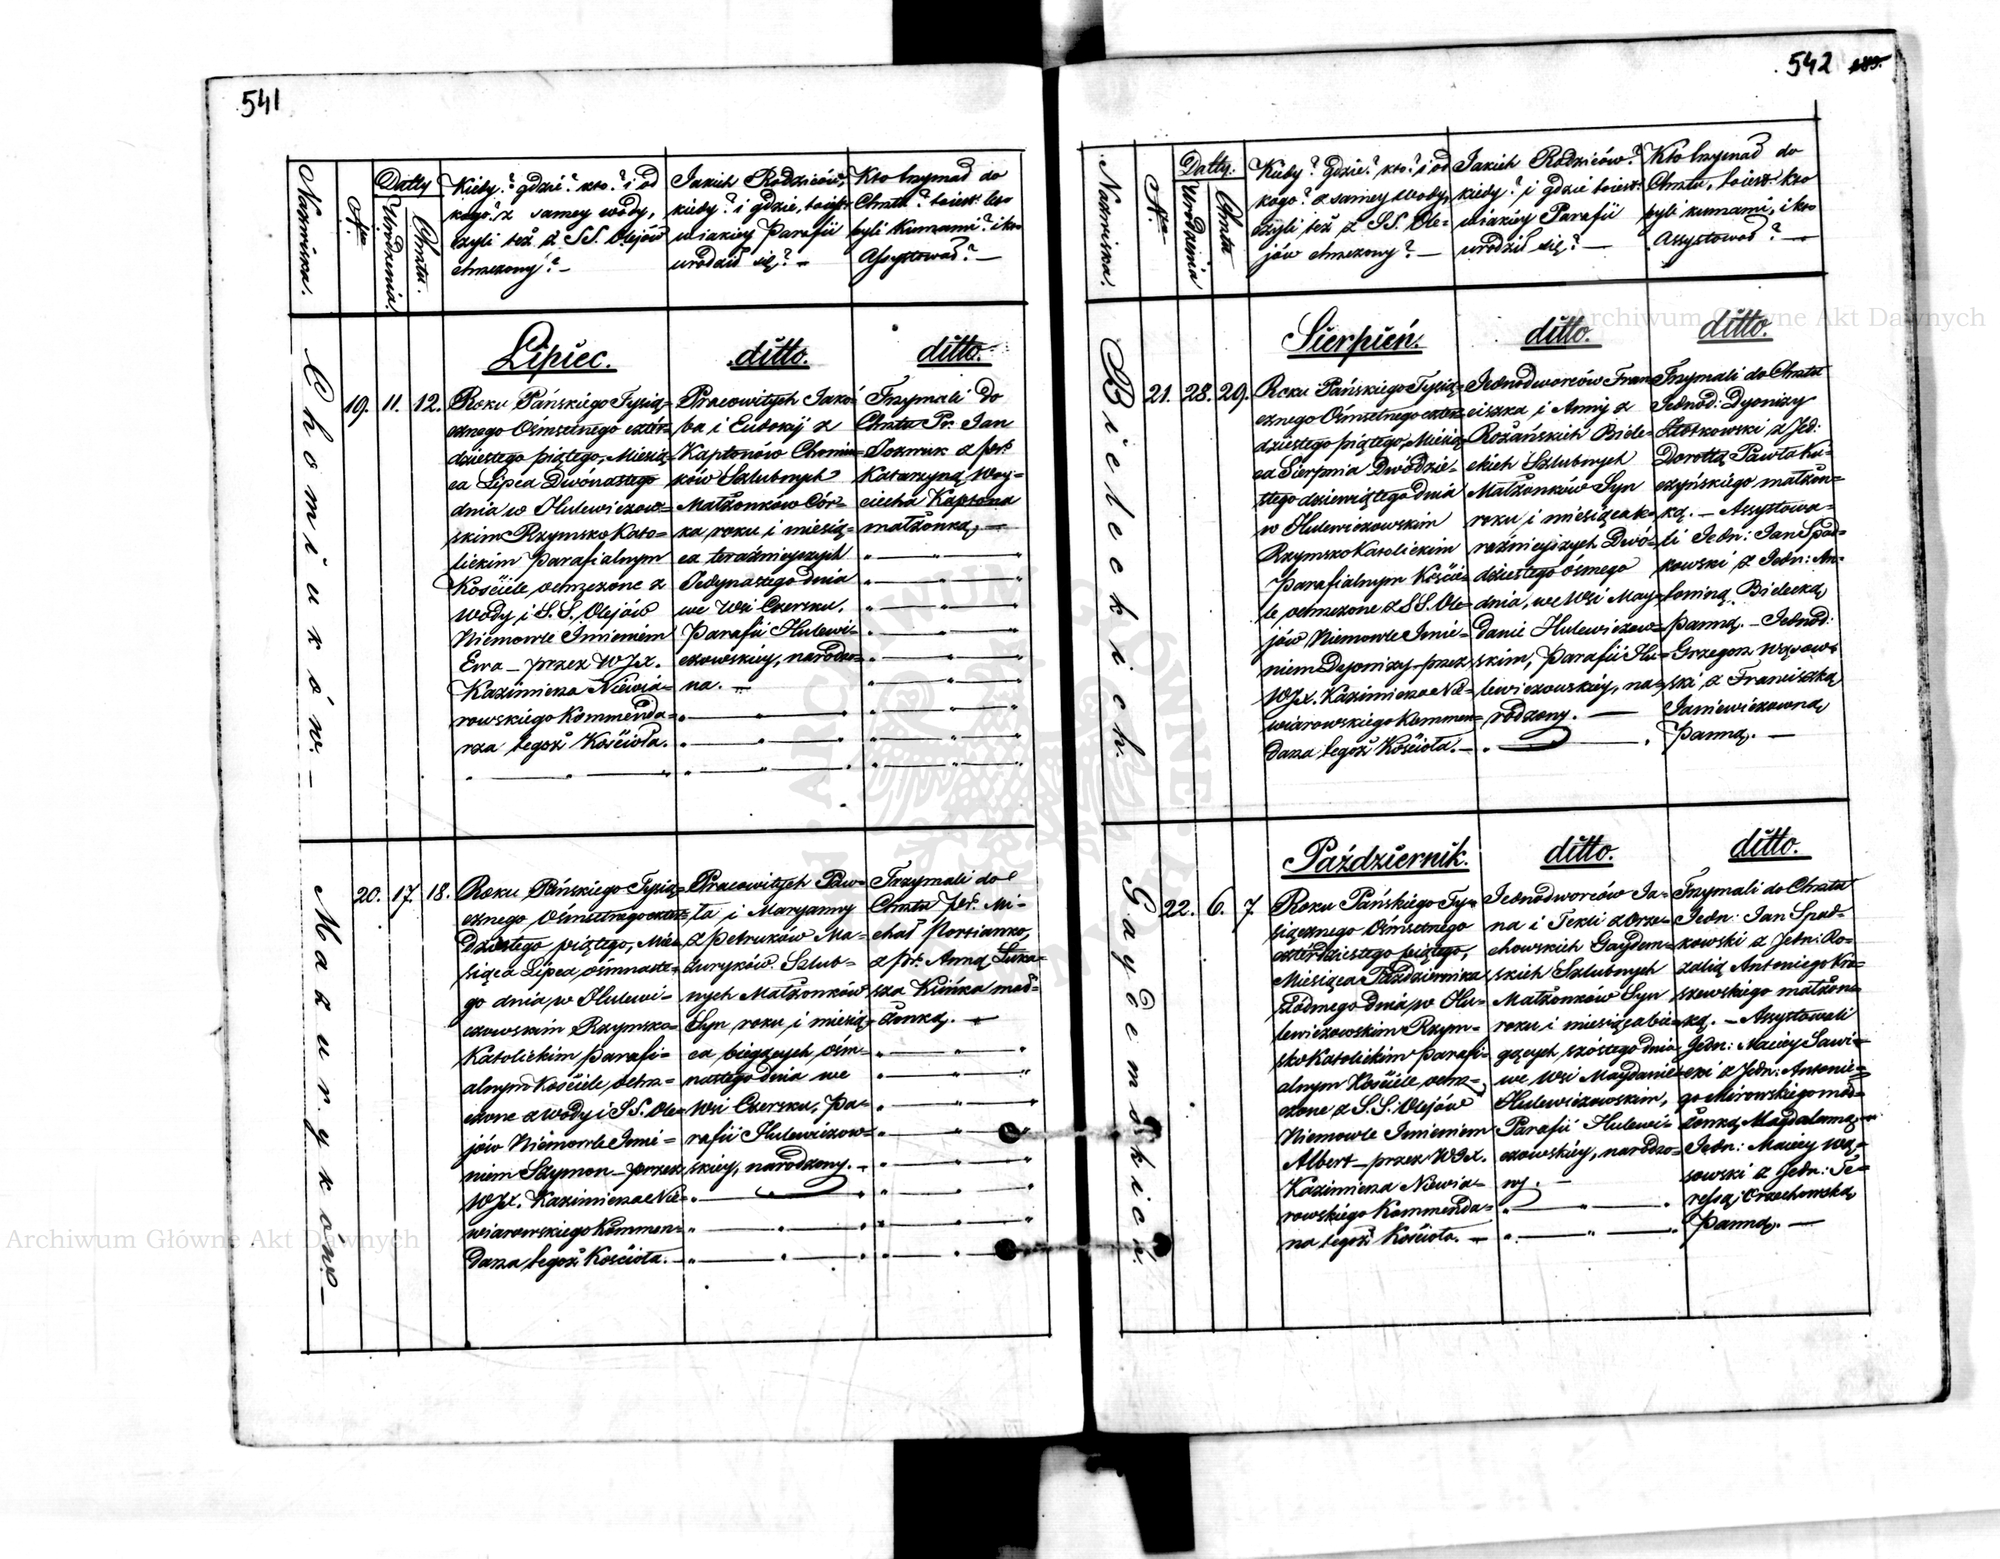 541
Nazwiska.
Nro
Datty
Urodzenia.
Chrztu.
Kiedy? gdzie? kto? i od
kogo? z samey wody,
czyli też z SS. Olejów
chrzczony? —
Jakich Rodziców,
kiedy? i gdzie, toiest:
w iakiey Parafii
urodził się? —
Kto trzymał do
Chrztu? toiest: kto
byli Kumami? i kto
Assystował? —
Chomiuków. —
19. 11. 12.
Lipiec.
Roku Pańskiego Tysią=
cznego Ośmsetnego czter=
dziestego piątego, Miesią=
ca Lipca Dwónastego
dnia w Hulewiczow=
skim Rzymsko Kato=
lickim Parafialnym
Kościele, ochrzczone z
Wody i S.S. Olejów
Niemowle Imieniem
Ewa — przez WJX.
Kazimierza Niewia=
rowskiego Kommenda=
rza tegoż Kościoła.
ditto.
Pracowitych Jakó=
ba i Eudokij z
Kaptonów Chomiu=
ków Szlubnych
Małżonków Cór=
ka roku i miesią=
ca teraźnieyszych
Jedynastego dnia
we Wsi Czersku,
Parafii Hulewi=
czowskiey, narodzo=
na. —
ditto.
Trzymali do
Chrztu Pr. Jan
z Pr:
Katarzyną Woy=
ciecha Kaptona
małżonką. —
Mazuryków. —
20. 17. 18.
Roku Pańskiego Tysią=
cznego Ośmsetnego czter=
dziestego piątego, Mie=
siąca Lipca ośmnaste=
go dnia w Hulewi=
czowskim Rzymsko=
Katolickim Parafi=
alnym Kościele, ochrz=
czone z wody i SS. Ole=
jów Niemowle Imie=
niem Szymon — przez
WJX. Kazimierza Nie=
wiarowskiego Kommen=
darza tegoż Kościoła. —
Pracowitych Paw=
ła i Maryanny
z Petruków Ma=
zuryków Szlub=
nych Małżonków
Syn roku i miesią=
ca bieżących ośm=
nastego dnia we
Wsi Czersku, Pa=
rafii Hulewiczow=
skiey, narodzony. —
Trzymali do
Chrztu Pr. Mi=
chał
z Pr. Anną Łuka=
sza małż=
żonką. —
542
Nazwiska.
Nro
Datty.
Urodzenia
Chrztu
Kiedy? gdzie? kto? i od
kogo? z samey Wody,
czyli też z S.S. Ole=
jów chrzczony? —
Jakich Rodziców?
kiedy? i gdzie toiest:
w iakiey Parafii
urodził się? —
Kto trzymał do
Chrztu, toiest: kto
byli kumami, i kto
Assystował? —
Bieleckich.
21. 28. 29.
Sierpień.
Roku Pańskiego Tysią=
cznego Ośmsetnego czter=
dziestego piątego, Miesią=
ca Sierpnia Dwódzie=
stego dziewiątego dnia
w Hulewiczowskim
Rzymsko Katolickim
Parafialnym Koście=
le ochrzczone z SS. Ole=
jów Niemowle Imie=
niem Dyonizy — przez
WJX. Kazimierza Nie=
wiarowskiego Kommen=
darza tegoż Kościoła. —
ditto.
Jednodworców Fran=
ciszka i Anny z
Rożańskich Biele=
ckich Szlubnych
Małżonków Syn
roku i miesiąca te=
raźnieyszych Dwó=
dziestego ósmego
dnia, we Wsi May=
danie Hulewiczow=
skim, Parafii Hu=
lewiczowskiey, na=
rodzony. —
ditto.
Trzymali do Chrztu
Jednod: Dyonizy
Złotkowski z Jed:
Dorotą Pawła Ku=
czyńskiego małżon=
ką. — Assystowa=
li Jedn: Jan Spad=
kowski z Jedn: An=
toniną Bielecką
Panną. — Jednod:
Grzegorz Wąsow=
ski z Franciszką
Janiewiczowną
Panną. —
Gaydemskich.
22. 6. 7.
Październik.
Roku Pańskiego Ty=
siącznego Ośmsetnego
czterdziestego piątego,
Miesiąca Października
siódmego dnia w Hu=
lewiczowskim Rzym=
sko Katolickim Parafi=
alnym Kościele ochrz=
czone z S.S. Olejów
Niemowle Imieniem
Albert — przez WJX.
Kazimierza Niewia=
rowskiego Kommenda=
rza tegoż Kościoła. —
ditto.
Jednodworców Ja=
na i Tekli z Orze=
chowskich Gaydem=
skich Szlubnych
Małżonków Syn
roku i miesiąca bie=
żących szóstego dnia
we Wsi Maydanie
Hulewiczowskim,
Parafii Hulewi=
czowskiey, narodzo=
ny. —
ditto.
Trzymali do Chrztu
Jedn: Jan Spad=
kowski z Jedn: Ro=
zalią Antoniego Kra=
szewskiego małżon=
ką. — Assystowali
Jedn: Maciey Sawi=
cki z Jedn: Antonie=
go Mirowskiego mał=
żonką Magdaleną —
Jedn: Maciey Wą=
sowski z Jedn: Te=
ressą Orzechowską
Panną. —
Archiwum Główne Akt Dawnych
Archiwum Główne Akt Dawnych